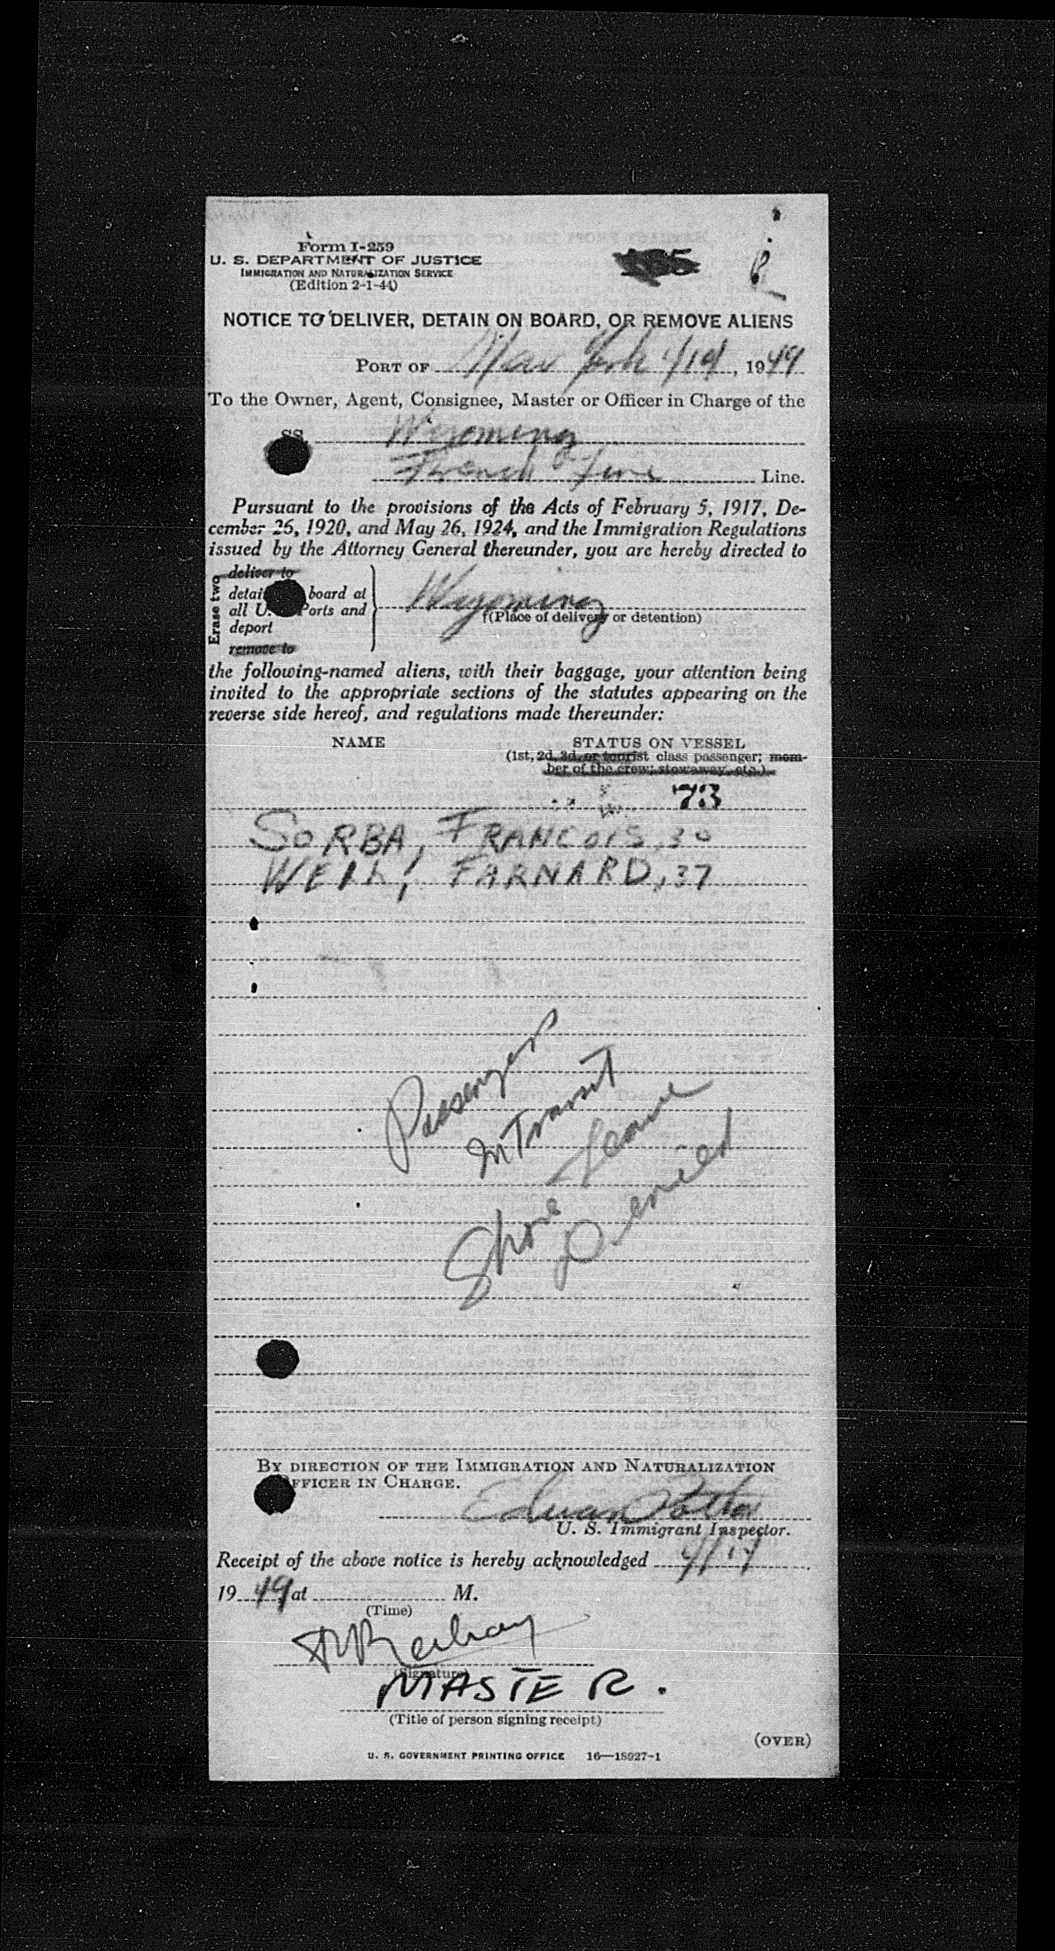 Form I-259
U. S. DEPARTMENT OF JUSTICE
IMMIGRATION AND NATURALIZATION SERVICE
(Edition 2-1-44)
NOTICE TO DELIVER, DETAIN ON BOARD, OR REMOVE ALIENS
PORT OF New York 4/19, 1949
To the Owner, Agent, Consignee, Master or Officer in Charge of the
SS Wyoming
French Line Line.
Pursuant to the provisions of the Acts of February 5, 1917, De-
cember 26, 1920, and May 26, 1924, and the Immigration Regulations
issued by the Attorney General thereunder, you are hereby directed to
Erase two
deliver to
board at
all U. Ports and
deport
remove to
Wyoming
(Place of delivery or detention)
the following-named aliens, with their baggage, your attention being
invited to the appropriate sections of the statutes appearing on the
reverse side hereof, and regulations made thereunder:
NAME STATUS ON VESSEL
(1st, 2d, 3d, or tourist class passenger; mem-
ber of the crew; stowaway, etc.)
73
SORBA, FRANCOIS, 30
WEIL, FARNARD, 37
Passengers
In Transit
Shore Leave
Denied
BY DIRECTION OF THE IMMIGRATION AND NATURALIZATION
OFFICER IN CHARGE.
U. S. Immigrant Inspector.
Receipt of the above notice is hereby acknowledged 4/19
1949, at M.
(Time)
(Signature)
MASTER.
(Title of person signing receipt)
(OVER)
U. S. GOVERNMENT PRINTING OFFICE 16—18927-1